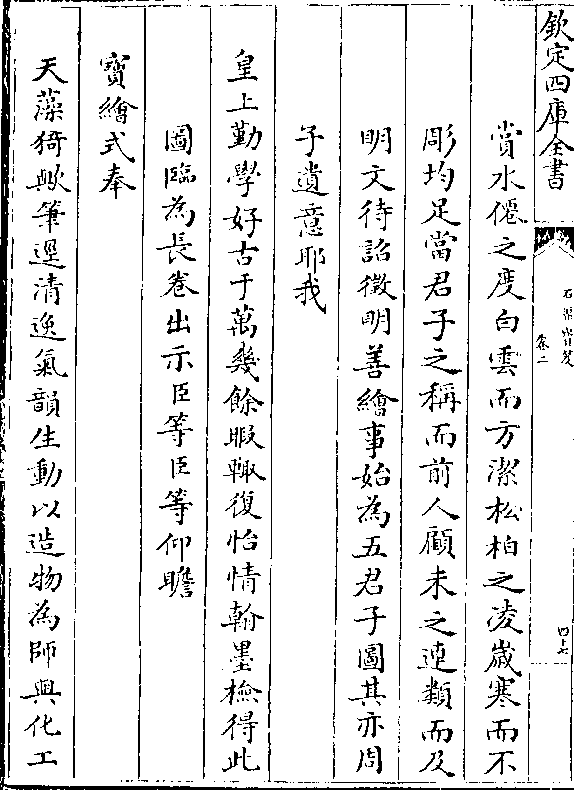 欽定四庫全書
石渠寳笈
卷二
四十七
賞水僊之度白雲而方潔松柏之凌歲寒而不
彫均足當君子之稱而前人顧未之連類而及
明文待詔徵明善繪事始為五君子圖其亦周
子遺意耶我
皇上勤學好古于萬幾餘暇輙復怡情翰墨檢得此
圖臨為長卷出示臣等臣等仰瞻
寶繪式奉
天藻猗歟筆墨清逸氣韻生動以造物為師與化工